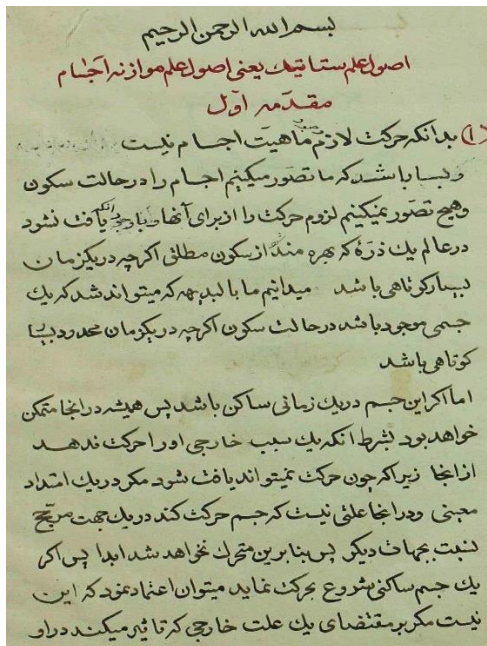 بسم الله الرحمن الرحیم
اصول علم ستاتیك یعنی اصول علم موازنه اجسام
مقدمه اوّل
(۱) بدانکه حرکت لازم ماهیّت اجسام نیست
و بسا باشد که ما تصوّر میکنیم اجسام را در حالت سکون
و هیچ تصوّر نمیکنیم لزوم حرکت را از برای آنها یافت نشود
در عالم یك ذرّۀ که بهره مند از سکون مطلق اکرچه در یکزمان
بسیار کوتاهی باشد میدانیم ما بالبدیهه که میتواند شد که یك
جسمی موجود باشد در حالت سکون اکرچه در یکزمان محدود بسیا
کوتاهی باشد
اما اکر این جسم در یك زمانی ساکن باشد پس همیشه در انجا متمکن
خواهد بود بشرط انکه یك سبب خارجی او را حرکت ندهد
از انجا زیرا که چون حرکت نمیتواند یافت شود مکر در یك امتداد
معینی و در انجا علتی نیست که جسم حرکت کند در یك جهت مرجّح
نسبت بجهات دیکر پس بنا برین متحرك نخواهد شد ابدا پس اکر
یك جسم ساکنی شروع بحرکت نماید میتوان اعتماد نمود که این
نیست مکر بر مقتضای یك علت خارجی که تاثیر میکند در او